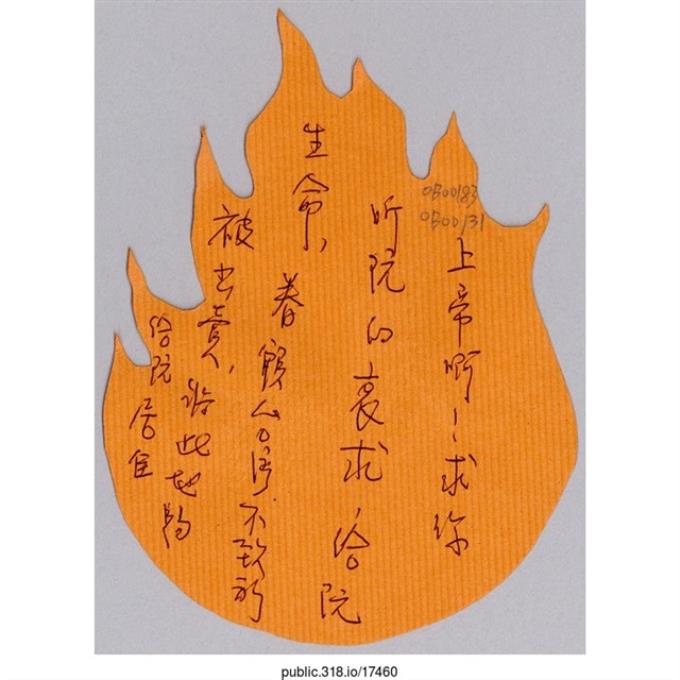 0B00183
0B00131
上帝啊!求祢
听阮的哀求,給阮
生命,眷顧台湾不致於
被出賣,將此地賜
給阮居住
public.318.io/17460